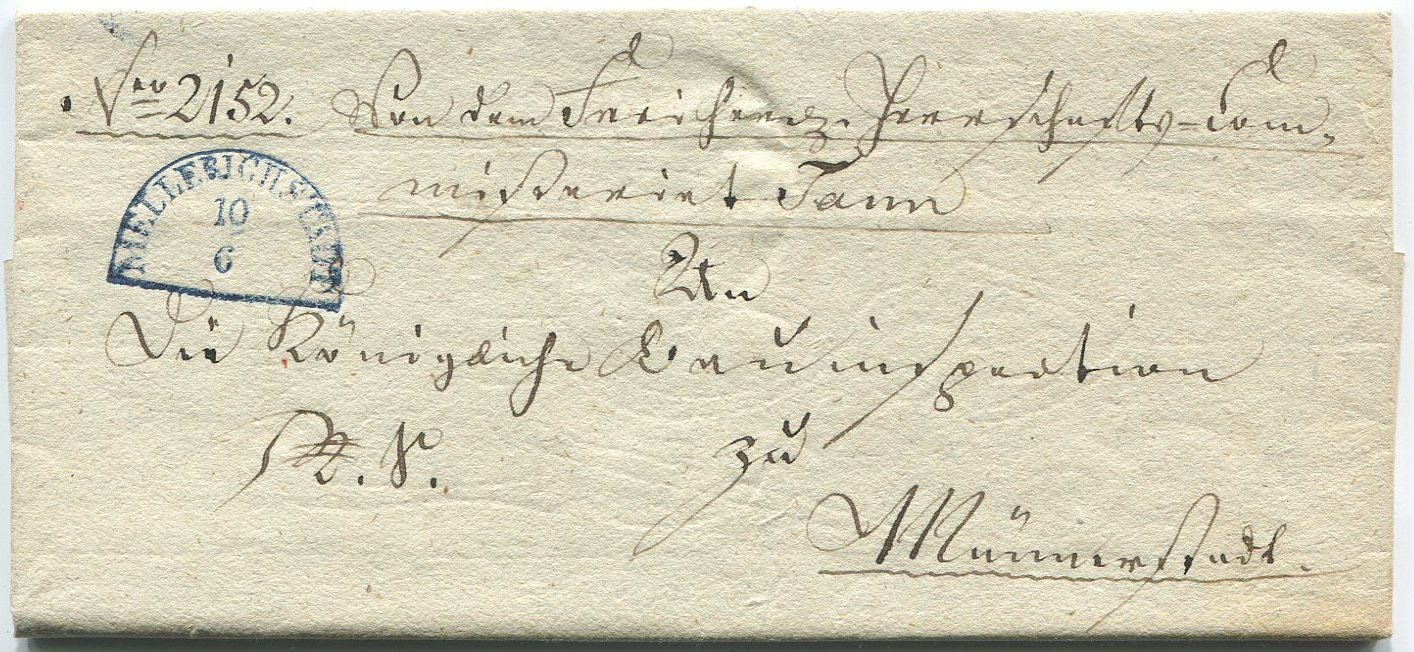 Nro 2152. Von dem Freiherrl. Herrschafts-Com-
missariat Tann
MELLRICHSTADT
10
6
An
Die Königliche Bauinspection
R. S.
zu
Münnerstadt.